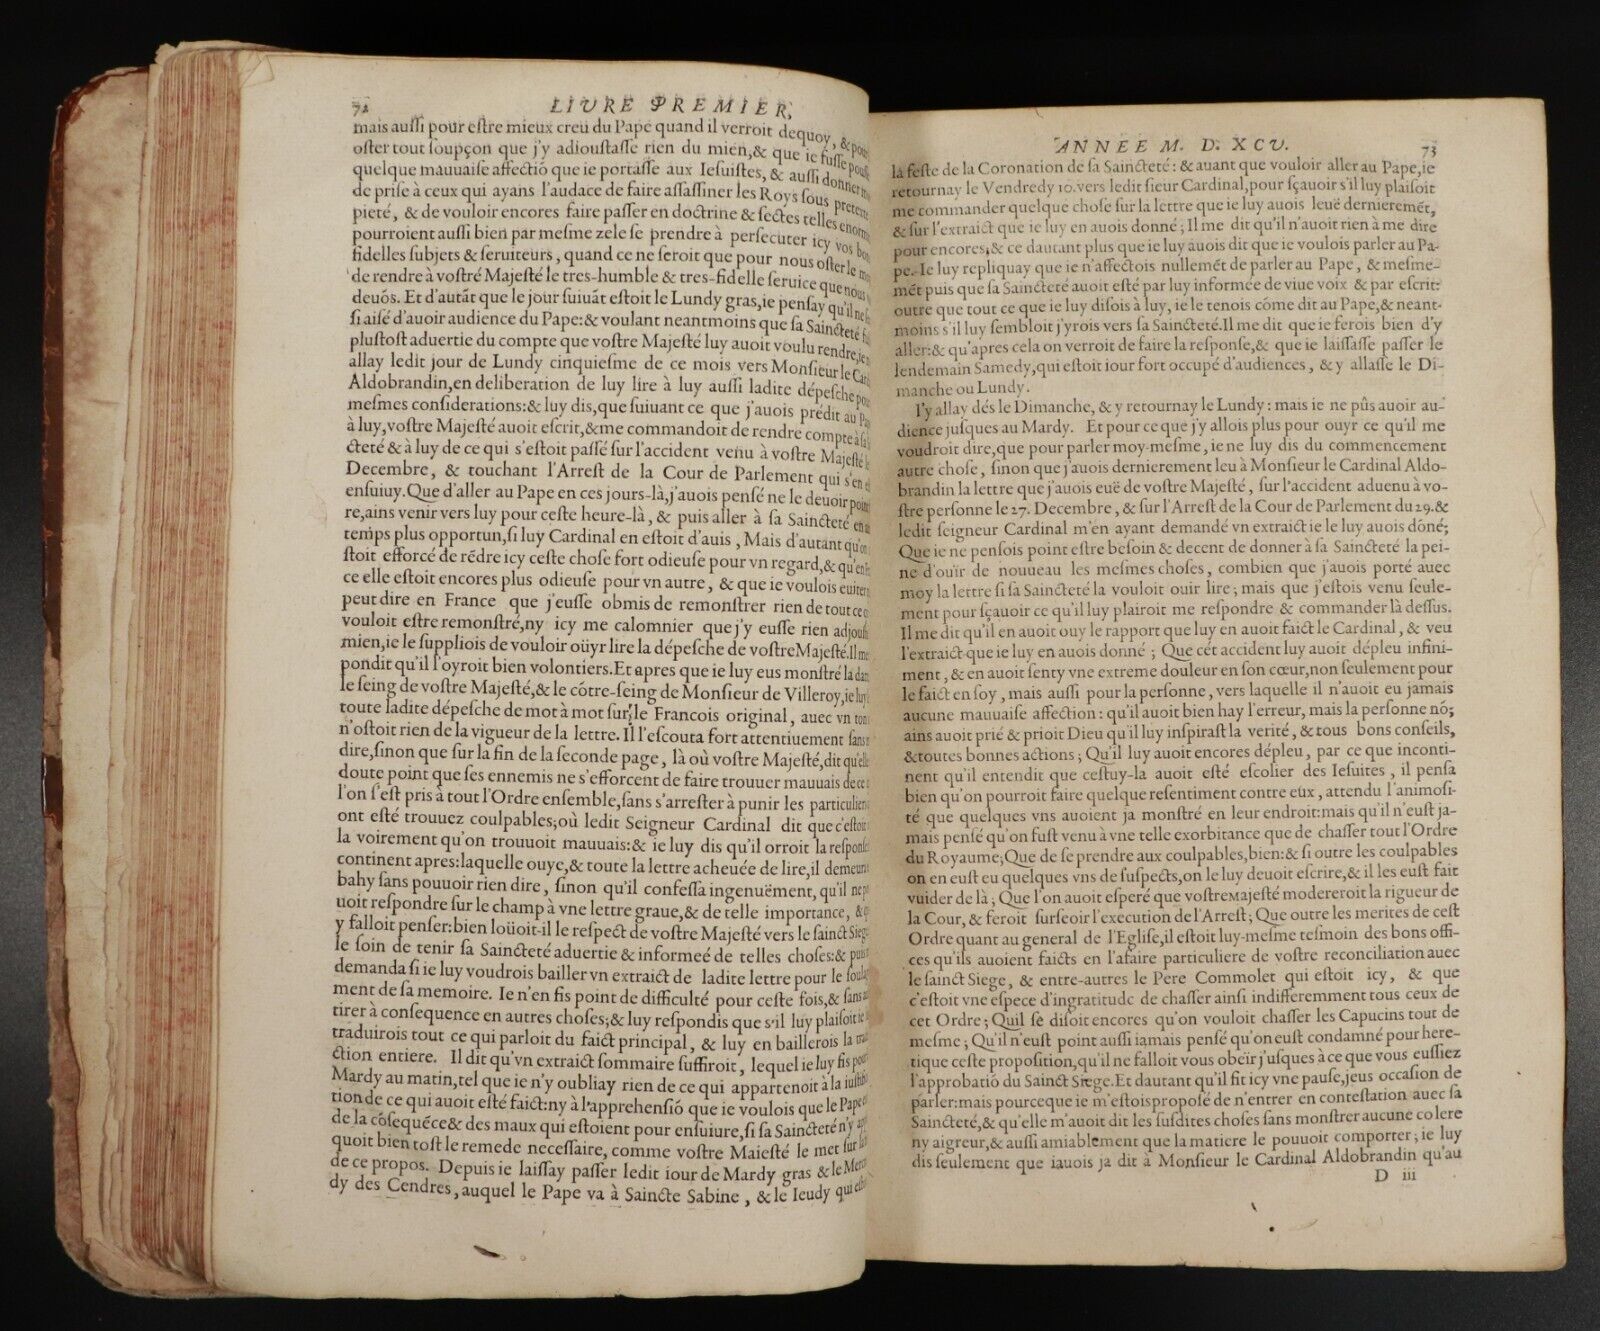 72 LIVRE PREMIER,
mais auſſi pour eſtre mieux creu du Pape quand il verroit dequoy, & pour
oſter tout ſoupçon que j'y adiouſtaſſe rien du mien,& que ie fuſſe pouſſé
quelque mauuaiſe affectiō que ie portaſſe aux Ieſuiſtes, & auſſi donner
de priſe à ceux qui ayans l'audace de faire aſſaſſiner les Roys ſous pretexte
pieté, & de vouloir encores faire paſſer en doctrine & ſectes telles enorm
pourroient auſſi bien par meſme zele ſe prendre à perſecuter icy vos bon
fidelles ſubjets & ſeruiteurs, quand ce ne ſeroit que pour nous oſter le
de rendre à voſtré Majeſté le tres-humble & tres-fidelle ſeruice que nous
deuōs. Et d'autāt que le jour ſuiuāt eſtoit le Lundy gras,ie penſay qu'il ne
ſi aiſé d'auoir audience du Pape:& voulant neantmoins que ſa Saincteté
pluſtoſt aduertie du compte que voſtre Majeſté luy auoit voulu rendre,ie
allay ledit jour de Lundy cinquieſme de ce mois vers Monſieur le Card
Aldobrandin,en deliberation de luy lire à luy auſſi ladite dépeſche pou
meſmes conſiderations:& luy dis,que ſuiuant ce que j'auois prédit au Pa
à luy,voſtre Majeſté auoit eſcrit,&me commandoit de rendre compte à ſa
cteté & à luy de ce qui s'eſtoit paſſé ſur l'accident venu à voſtre Majeſté le
Decembre, & touchant l'Arreſt de la Cour de Parlement qui s'en
enſuiuy.Que d'aller au Pape en ces jours-là,j'auois penſé ne le deuoir point
re,ains venir vers luy pour ceſte heure-là, & puis aller à ſa Saincteté en
temps plus opportun,ſi luy Cardinal en eſtoit d'auis, Mais d'autant qu'on
ſtoit efforcé de rēdre icy ceſte choſe fort odieuſe pour vn regard,& qu'en
ce elle eſtoit encores plus odieuſe pour vn autre, & que ie voulois euiter
peut dire en France que j'euſſe obmis de remonſtrer rien de tout ce
vouloit eſtre remonſtré,ny icy me calomnier que j'y euſſe rien adjouſt
mien,ie le ſuppliois de vouloir oüyr lire la dépeſche de voſtre Majeſté.Il me
pondit qu'il l'oyroit bien volontiers.Et apres que ie luy eus monſtré là
le ſeing de voſtre Majeſté,& le cōtre-ſeing de Monſieur de Villeroy,ie luy
toute ladite dépeſche de mot à mot ſur le Francois original, auec vn ton
n'oſtoit rien de la vigueur de la lettre. Il l'eſcouta fort attentiuement ſans
dire,ſinon que ſur la fin de la ſeconde page, là où voſtre Majeſté,dit qu'elle
doute point que ſes ennemis ne s'efforcent de faire trouuer mauuais de ce
l'on s'eſt pris à tout l'Ordre enſemble,ſans s'arreſter à punir les particuliers
ont eſté trouuez coulpables;où ledit Seigneur Cardinal dit que c'eſtoit
la voirement qu'on trouuoit mauuais:& ie luy dis qu'il orroit la reſponſe
continent apres:laquelle ouye,& toute la lettre acheuée de lire,il demeura
bahy ſans pouuoir rien dire, ſinon qu'il confeſſa ingenuëment, qu'il ne
uoit reſpondre ſur le champ à vne lettre graue,& de telle importance, &
y falloit penſer:bien loüoit-il le reſpect de voſtre Majeſté vers le ſainct Siege
le ſoin de tenir ſa Saincteté aduertie & informeé de telles choſes:& puis
demanda ſi ie luy voudrois bailler vn extraict de ladite lettre pour le ſoulag
ment de ſa memoire. Ie n'en fis point de difficulté pour ceſte fois,& ſans
tirer à conſequence en autres choſes;& luy reſpondis que s'il luy plaiſoit ie
traduirois tout ce qui parloit du faict principal, & luy en baillerois la
ction entiere. Il dit qu'vn extraict ſommaire ſuffiroit, lequel ie luy fis pour
Mardy au matin,tel que ie n'y oubliay rien de ce qui appartenoit à la iuſtifi
tion de ce qui auoit eſté faict:ny à l'apprehenſiō que ie voulois que le Pape
de la cōſequēce& des maux qui eſtoient pour enſuiure,ſi ſa Saincteté n'y
quoit bien toſt le remede neceſſaire, comme voſtre Maieſté le met ſur
de ce propos. Depuis ie laiſſay paſſer ledit iour de Mardy gras & le Mercr
dy des Cendres, auquel le Pape va à Saincte Sabine, & le Ieudy qui eſtoit
ANNEE M. D. XCV. 73
la feſte de la Coronation de ſa Saincteté: & auant que vouloir aller au Pape,ie
retournay le Vendredy 10.vers ledit ſieur Cardinal,pour ſçauoir s'il luy plaiſoit
me commander quelque choſe ſur la lettre que ie luy auois leuë dernieremēt,
& ſur l'extraict que ie luy en auois donné; Il me dit qu'il n'auoit rien à me dire
pour encores;& ce dautant plus que ie luy auois dit que ie voulois parler au Pa-
pe. Ie luy repliquay que ie n'affectois nullemēt de parler au Pape, & meſme-
mēt puis que ſa Saincteté auoit eſté par luy informée de viue voix & par eſcrit:
outre que tout ce que ie luy diſois à luy, ie le tenois cōme dit au Pape,& neant-
moins s'il luy ſembloit j'yrois vers ſa Saincteté.Il me dit que ie ferois bien d'y
aller:& qu'apres cela on verroit de faire la reſponſe,& que ie laiſſaſſe paſſer le
lendemain Samedy,qui eſtoit iour fort occupé d'audiences, & y allaſſe le Di-
manche ou Lundy.
I'y allay dés le Dimanche, & y retournay le Lundy: mais ie ne pûs auoir au-
dience juſques au Mardy. Et pour ce que j'y allois plus pour ouyr ce qu'il me
voudroit dire,que pour parler moy-meſme, ie ne luy dis du commencement
autre choſe, ſinon que j'auois dernierement leu à Monſieur le Cardinal Aldo-
brandin la lettre que j'auois euë de voſtre Majeſté, ſur l'accident aduenu à vo-
ſtre perſonne le 27. Decembre, & ſur l'Arreſt de la Cour de Parlement du 29.&
ledit ſeigneur Cardinal m'en ayant demandé vn extraict ie le luy auois dōné;
Que ie ne penſois point eſtre beſoin & decent de donner à ſa Saincteté la pei-
ne d'ouïr de nouueau les meſmes choſes, combien que j'auois porté auec
moy la lettre ſi ſa Saincteté la vouloit ouir lire; mais que j'eſtois venu ſeule-
ment pour ſçauoir ce qu'il luy plairoit me reſpondre & commander là deſſus.
Il me dit qu'il en auoit ouy le rapport que luy en auoit faict le Cardinal, & veu
l'extraict que ie luy en auois donné; Que cét accident luy auoit dépleu infini-
ment, & en auoit ſenty vne extreme douleur en ſon cœur,non ſeulement pour
le faict en ſoy, mais auſſi pour la perſonne, vers laquelle il n'auoit eu jamais
aucune mauuaiſe affection: qu'il auoit bien hay l'erreur, mais la perſonne nō;
ains auoit prié & prioit Dieu qu'il luy inſpiraſt la verité, & tous bons conſeils,
& toutes bonnes actions; Qu'il luy auoit encores dépleu, par ce que inconti-
nent qu'il entendit que ceſtuy-la auoit eſté eſcolier des Ieſuites, il penſa
bien qu'on pourroit faire quelque reſentiment contre eux, attendu l'animoſi-
té que quelques vns auoient ja monſtré en leur endroit:mais qu'il n'euſt ja-
mais penſé qu'on fuſt venu à vne telle exorbitance que de chaſſer tout l'Ordre
du Royaume;Que de ſe prendre aux coulpables,bien:& ſi outre les coulpables
on en euſt eu quelques vns de ſuſpects,on le luy deuoit eſcrire,& il les euſt fait
vuider de là; Que l'on auoit eſperé que voſtre Majeſté modereroit la rigueur de
la Cour, & feroit ſurſeoir l'execution de l'Arreſt; Que outre les merites de ceſt
Ordre quant au general de l'Egliſe,il eſtoit luy-meſme teſmoin des bons offi-
ces qu'ils auoient faicts en l'afaire particuliere de voſtre reconciliation auec
le ſainct Siege, & entre-autres le Pere Commolet qui eſtoit icy, & que
c'eſtoit vne eſpece d'ingratitude de chaſſer ainſi indifferemment tous ceux de
cet Ordre; Quil ſe diſoit encores qu'on vouloit chaſſer les Capucins tout de
meſme; Qu'il n'euſt point auſſi iamais penſé qu'on euſt condamné pour here-
tique ceſte propoſition,qu'il ne falloit vous obeïr j'uſques à ce que vous euſſiez
l'approbatiō du Sainct Siege.Et dautant qu'il fit icy vne pauſe,jeus occaſion de
parler:mais pource que ie m'eſtois propoſé de n'entrer en conteſtation auec ſa
Saincteté,& qu'elle m'auoit dit les ſuſdites choſes ſans monſtrer aucune colere
ny aigreur,& auſſi amiablement que la matiere le pouuoit comporter; ie luy
dis ſeulement que iauois ja dit à Monſieur le Cardinal Aldobrandin qu'au
D iii